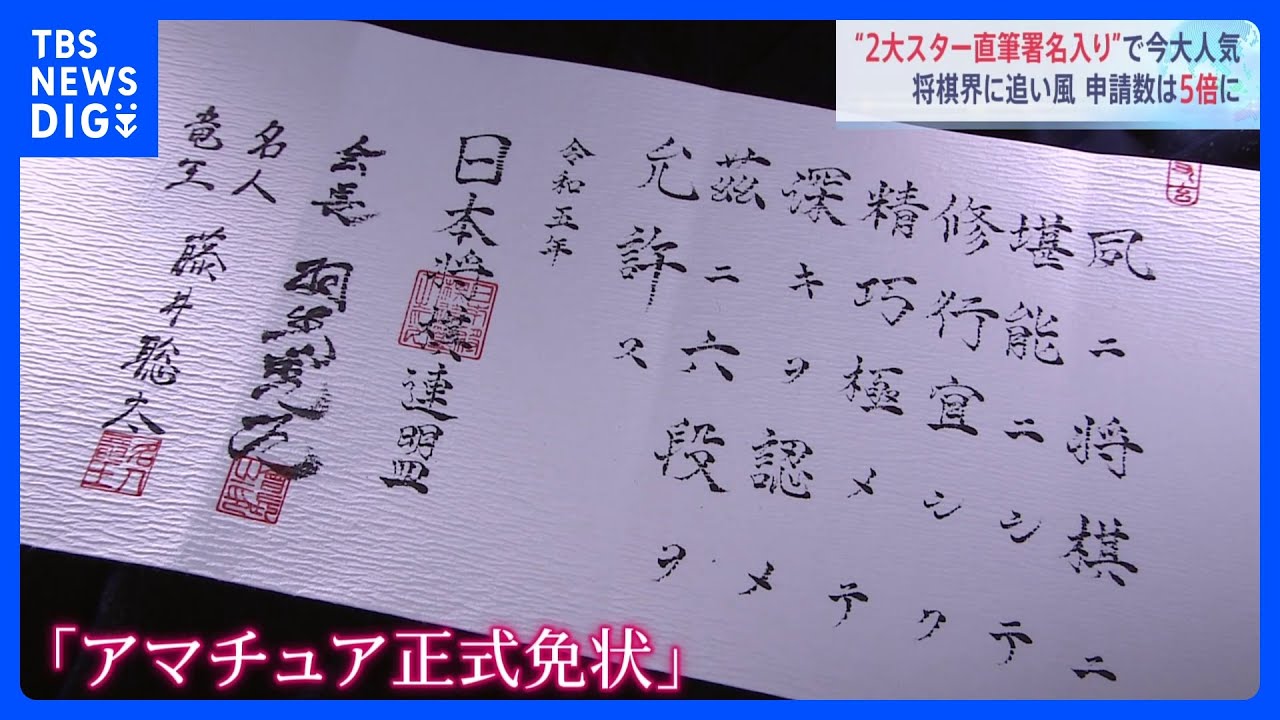 TBS
NEWS
DIG
“2大スター直筆署名入り”で今大人気
将棋界に追い風 申請数は5倍に
夙ニ将棋ニ
堪能ニシテ
修行宜シク
精巧極メテ
深キヲ認メ
茲ニ六段ヲ
允許ス
令和五年
日本将棋連盟
会長 羽生善治
名人
竜王 藤井聡太
「アマチュア正式免状」